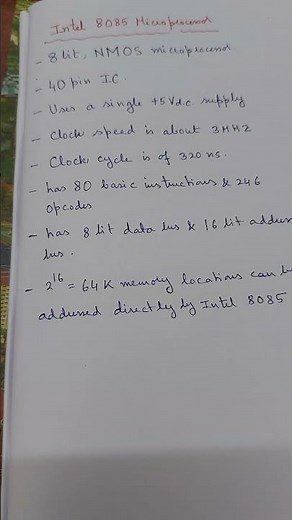 Intel 8085 Microprocessor
- 8 bit, NMOS microprocessor
- 40 pin IC.
- Uses a single +5V d.c. supply
- Clock speed is about 3MHZ
- Clock cycle is of 320 ns.
- has 80 basic instructions & 246
opcodes
- has 8 bit data bus & 16 bit address
bus.
- 2^16 = 64K memory locations can be
addressed directly by Intel 8085